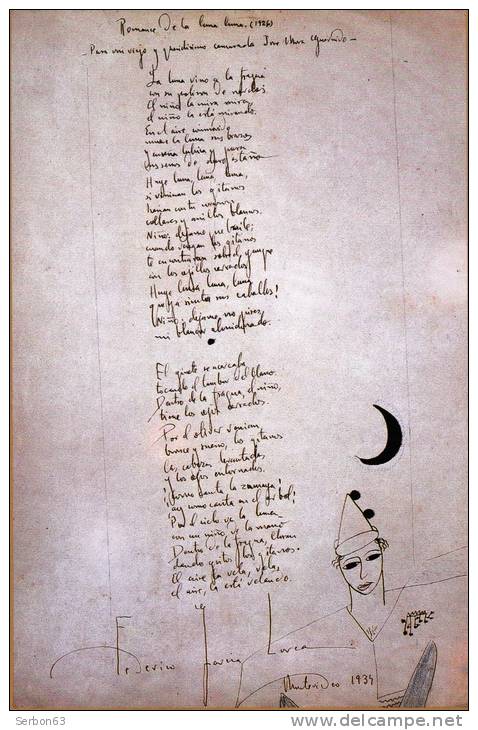 Romance De la luna luna. (1926)
- Para mi viejo y queridísimo camarada
La luna vino a la fragua
con su polisón de nardos
El niño la mira mira,
el niño la está mirando.
En el aire conmovido
mueve la luna sus brazos
y enseña lúbrica y pura
sus senos de duro estaño
Huye luna, luna, luna,
si vinieran los gitanos
harían con tu corazón
collares y anillos blancos.
Niño, déjame que baile,
cuando vengan los gitanos
te encontrarán sobre el yunque
con los ojillos cerrados
Huye luna, luna, luna
que ya siento sus caballos!
Niño, déjame, no pises
mi blancor almidonado.
El jinete se acercaba
tocando el tambor del llano.
Dentro de la fragua, el niño,
tiene los ojos cerrados.
Por el olivar venían,
bronce y sueño, los gitanos
las cabezas levantadas
y los ojos entornados.
¡Cómo canta la zumaya!
¡ay como canta en el árbol!
Por el cielo va la luna
con un niño de la mano
Dentro de la fragua, lloran
dando gritos los gitanos.
El aire la vela, vela,
el aire, la está velando.
Federico García Lorca
Montevideo 1934
Serbon63
delcampe.net